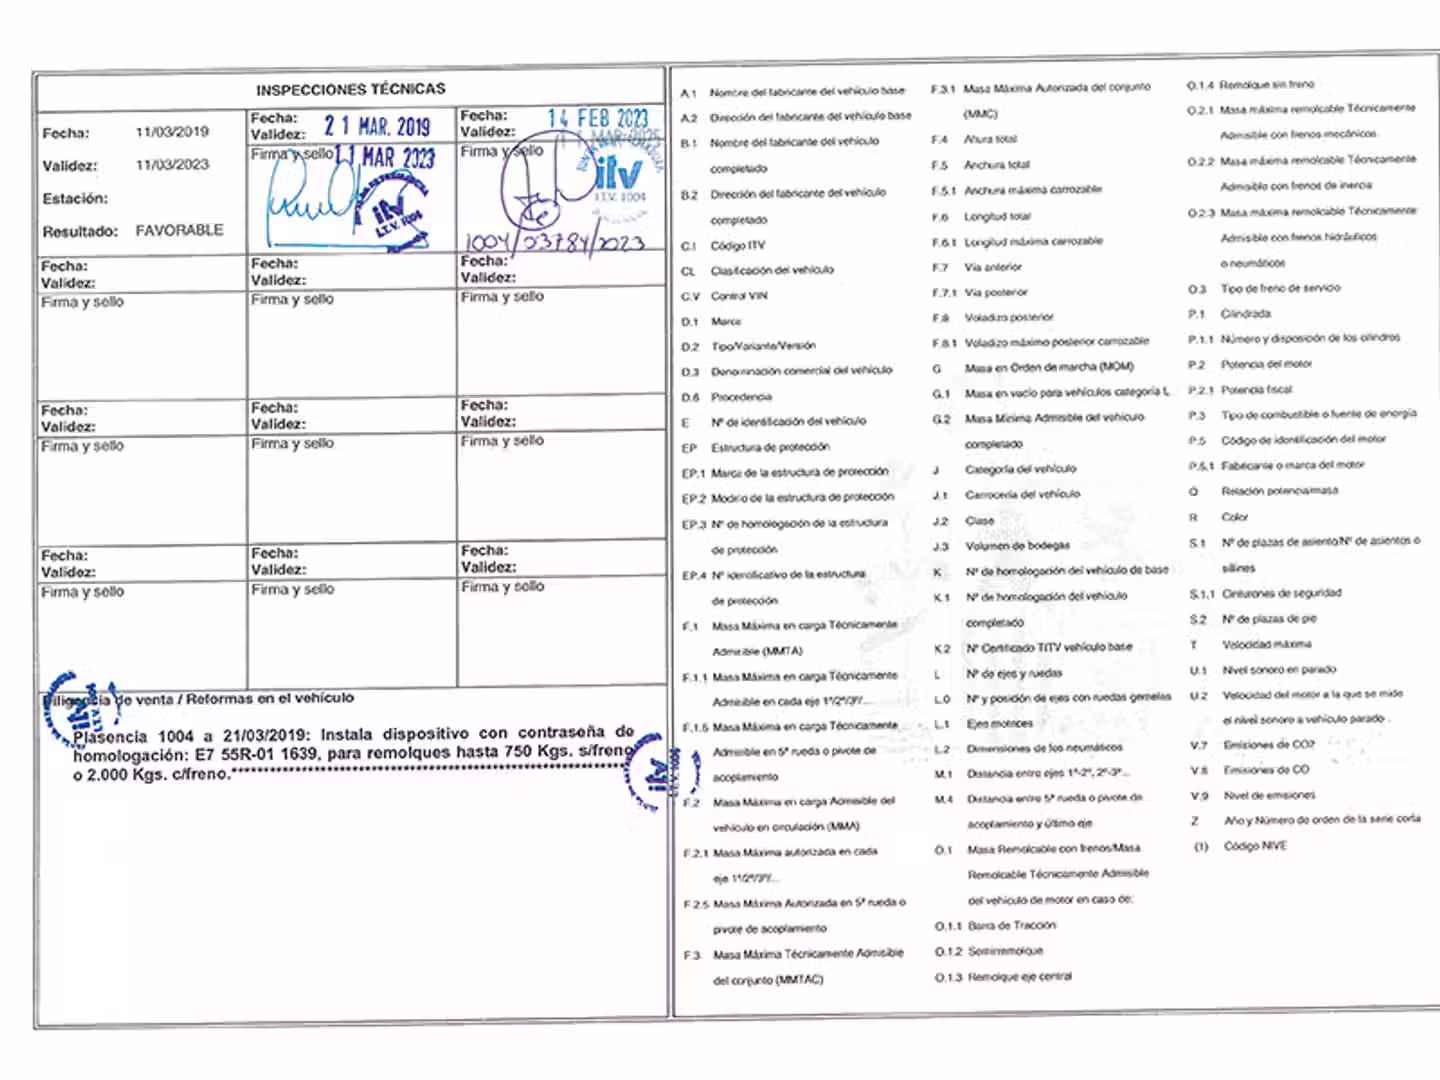 INSPECCIONES TÉCNICAS
Fecha: 11/03/2019
Validez: 11/03/2023
Estación:
Resultado: FAVORABLE
Fecha:
Validez: 21 MAR. 2019
Firma y sello 11 MAR 2023
itv
I.T.V. 1004
Fecha: 14 FEB 2023
Validez: 11 MAR 2025
Firma y sello
itv
I.T.V. 1004
1004/03784/2023
Fecha:
Validez:
Firma y sello
Fecha:
Validez:
Firma y sello
Fecha:
Validez:
Firma y sello
Fecha:
Validez:
Firma y sello
Fecha:
Validez:
Firma y sello
Fecha:
Validez:
Firma y sello
Fecha:
Validez:
Firma y sello
Fecha:
Validez:
Firma y sello
Fecha:
Validez:
Firma y sello
Diligencia de venta / Reformas en el vehículo
Plasencia 1004 a 21/03/2019: Instala dispositivo con contraseña de
homologación: E7 55R-01 1639, para remolques hasta 750 Kgs. s/freno
o 2.000 Kgs. c/freno.
itv
I.T.V. 1004
A.1 Nombre del fabricante del vehículo base
A.2 Dirección del fabricante del vehículo base
B.1 Nombre del fabricante del vehículo
completado
B.2 Dirección del fabricante del vehículo
completado
C.I Código ITV
CL Clasificación del vehículo
C.V Control VIN
D.1 Marca
D.2 Tipo/Variante/Versión
D.3 Denominación comercial del vehículo
D.6 Procedencia
E Nº de identificación del vehículo
EP Estructura de protección
EP.1 Marca de la estructura de protección
EP.2 Modelo de la estructura de protección
EP.3 Nº de homologación de la estructura
de protección
EP.4 Nº identificativo de la estructura
de protección
F.1 Masa Máxima en carga Técnicamente
Admisible (MMTA)
F.1.1 Masa Máxima en carga Técnicamente
Admisible en cada eje 1º/2º/3º/...
F.1.5 Masa Máxima en carga Técnicamente
Admisible en 5ª rueda o pivote de
acoplamiento
F.2 Masa Máxima en carga Admisible del
vehículo en circulación (MMA)
F.2.1 Masa Máxima autorizada en cada
eje 1º/2º/3º/...
F.2.5 Masa Máxima Autorizada en 5ª rueda o
pivote de acoplamiento
F.3 Masa Máxima Técnicamente Admisible
del conjunto (MMTAC)
F.3.1 Masa Máxima Autorizada del conjunto
(MMC)
F.4 Altura total
F.5 Anchura total
F.5.1 Anchura máxima carrozable
F.6 Longitud total
F.6.1 Longitud máxima carrozable
F.7 Vía anterior
F.7.1 Vía posterior
F.8 Voladizo posterior
F.8.1 Voladizo máximo posterior carrozable
G Masa en Orden de marcha (MOM)
G.1 Masa en vacío para vehículos categoría L
G.2 Masa Mínima Admisible del vehículo
completado
J Categoría del vehículo
J.1 Carrocería del vehículo
J.2 Clase
J.3 Volumen de bodegas
K Nº de homologación del vehículo de base
K.1 Nº de homologación del vehículo
completado
K.2 Nº Certificado TITV vehículo base
L Nº de ejes y ruedas
L.0 Nº y posición de ejes con ruedas gemelas
L.1 Ejes motrices
L.2 Dimensiones de los neumáticos
M.1 Distancia entre ejes 1º-2º, 2º-3º...
M.4 Distancia entre 5ª rueda o pivote de
acoplamiento y último eje
O.1 Masa Remolcable con frenos/Masa
Remolcable Técnicamente Admisible
del vehículo de motor en caso de:
O.1.1 Barra de Tracción
O.1.2 Semirremolque
O.1.3 Remolque eje central
O.1.4 Remolque sin freno
O.2.1 Masa máxima remolcable Técnicamente
Admisible con frenos mecánicos
O.2.2 Masa máxima remolcable Técnicamente
Admisible con frenos de inercia
O.2.3 Masa máxima remolcable Técnicamente
Admisible con frenos hidráulicos
o neumáticos
O.3 Tipo de freno de servicio
P.1 Cilindrada
P.1.1 Número y disposición de los cilindros
P.2 Potencia del motor
P.2.1 Potencia fiscal
P.3 Tipo de combustible o fuente de energía
P.5 Código de identificación del motor
P.5.1 Fabricante o marca del motor
Q Relación potencia/masa
R Color
S.1 Nº de plazas de asiento/Nº de asientos o
sillines
S.1.1 Cinturones de seguridad
S.2 Nº de plazas de pie
T Velocidad máxima
U.1 Nivel sonoro en parado
U.2 Velocidad del motor a la que se mide
el nivel sonoro a vehículo parado .
V.7 Emisiones de CO2
V.8 Emisiones de CO
V.9 Nivel de emisiones
Z Año y Número de orden de la serie corta
(1) Código NIVE